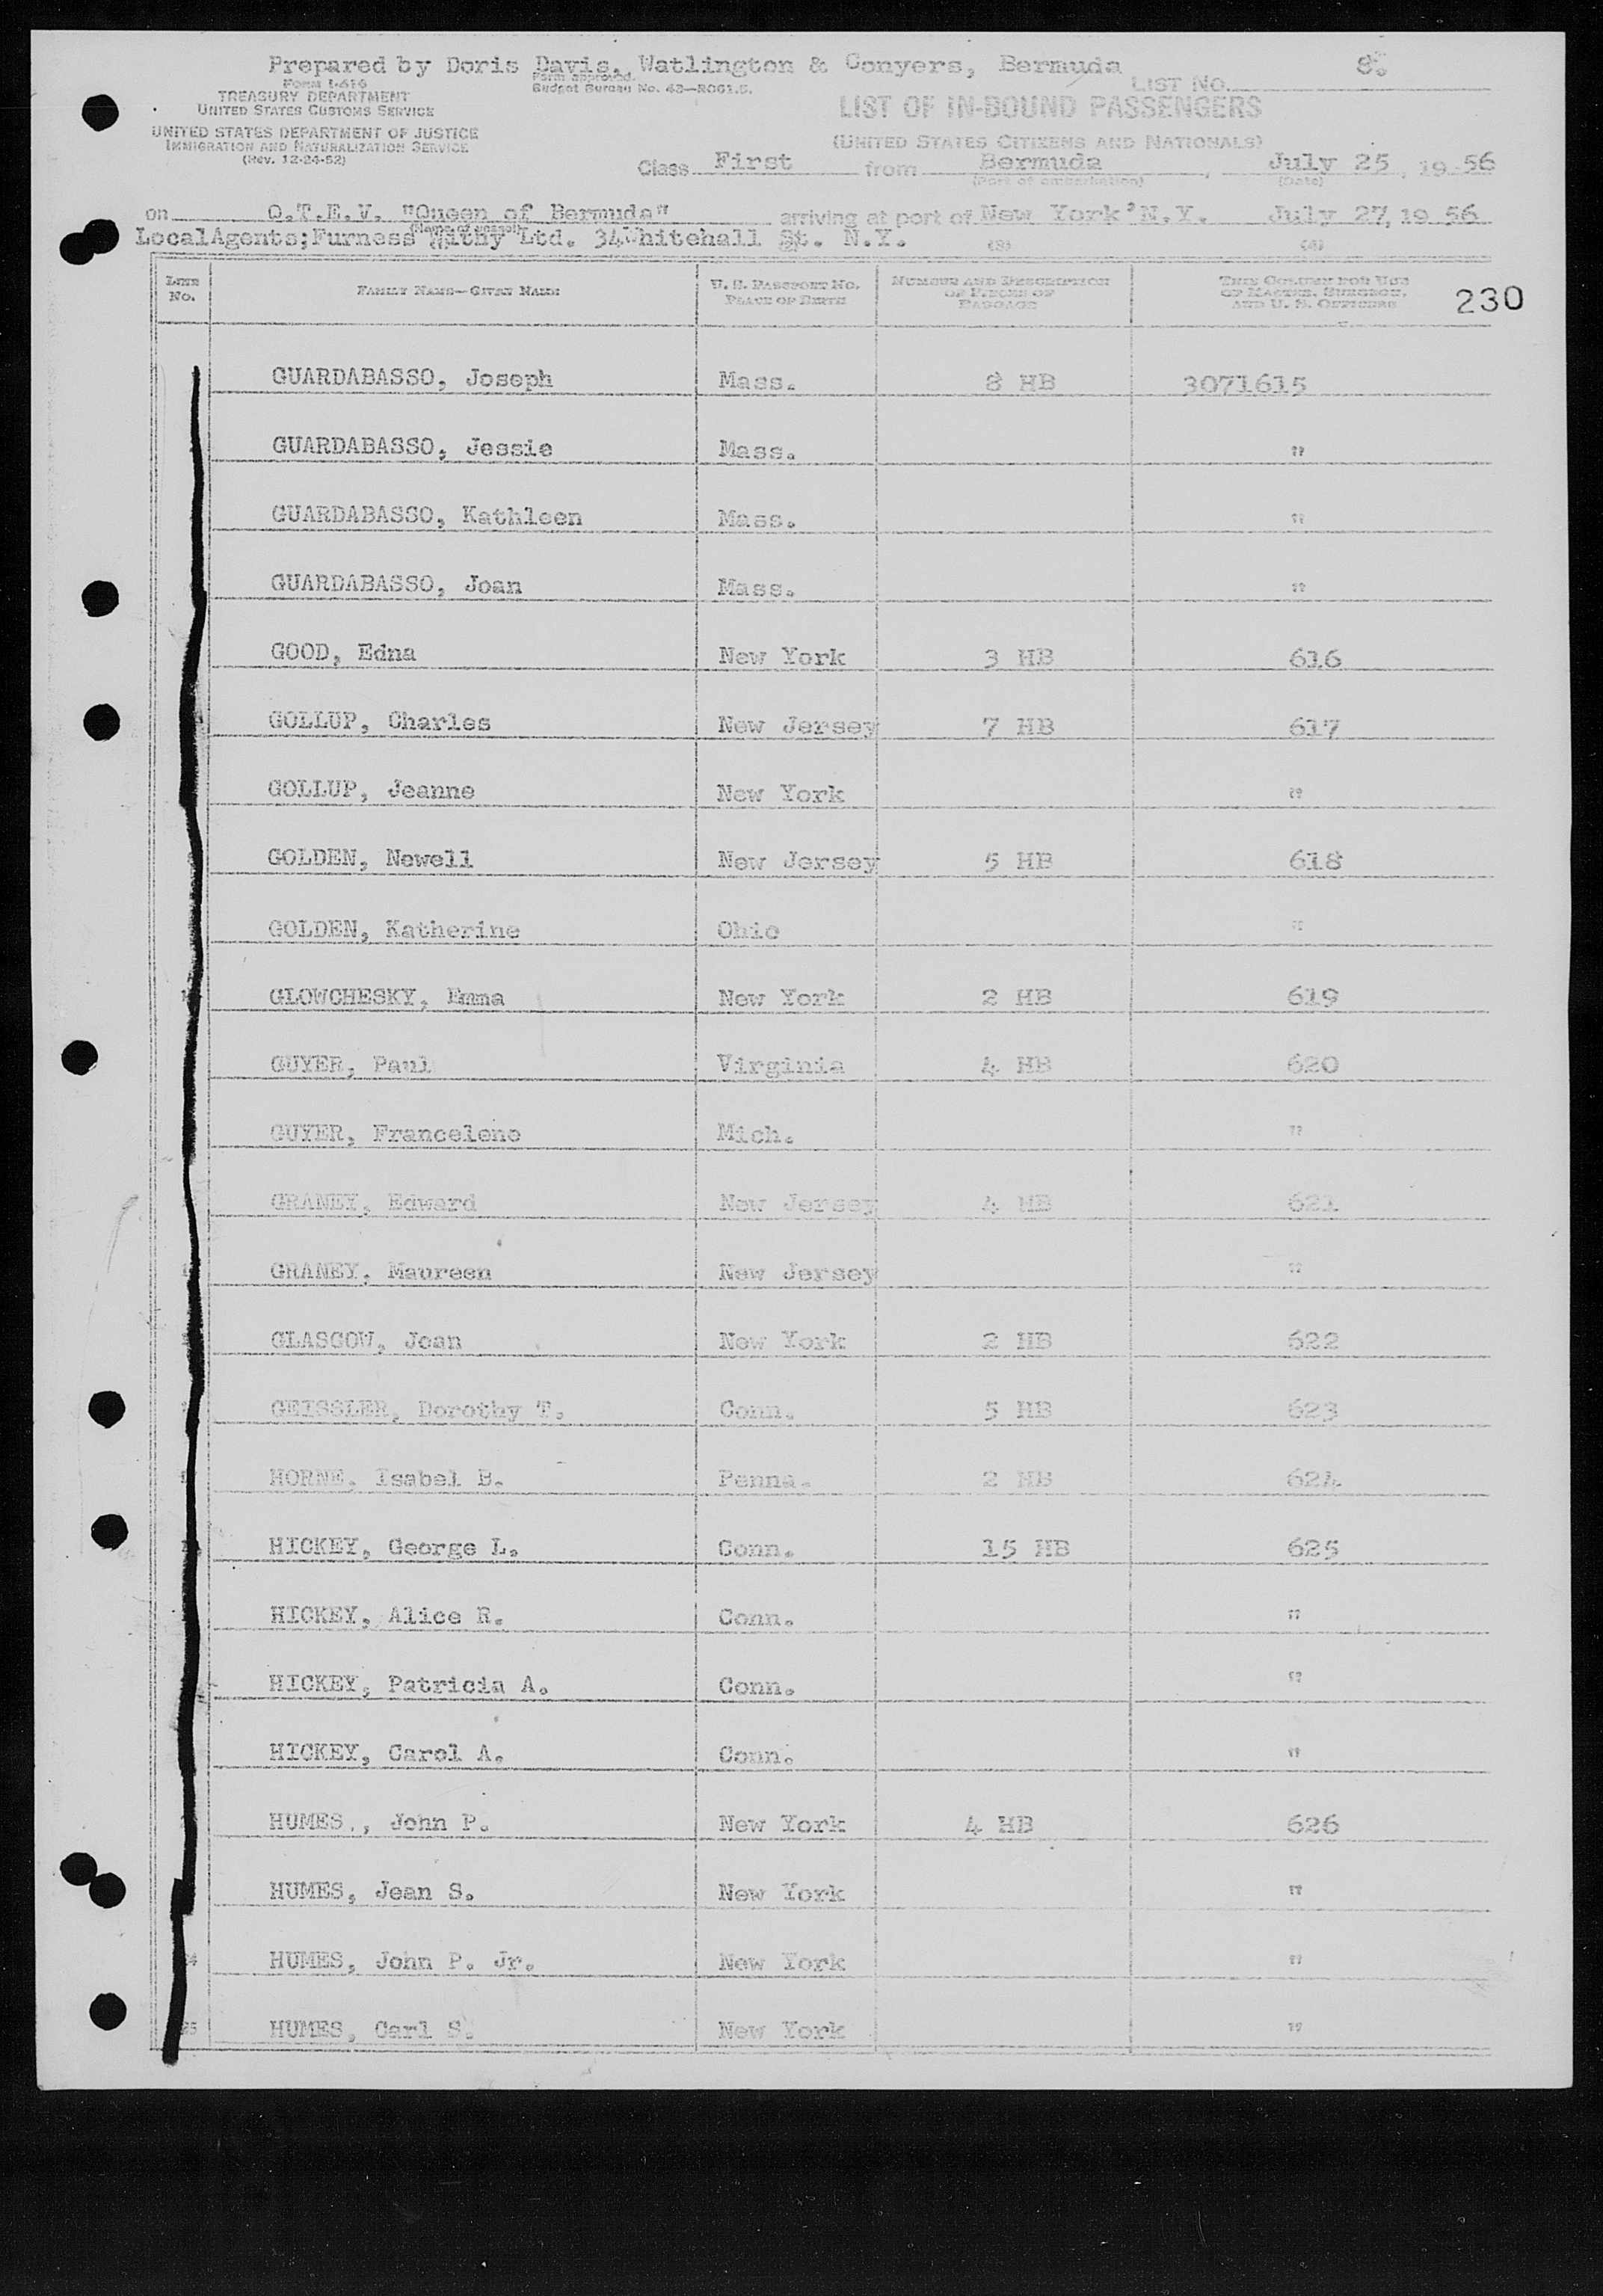 Prepared by Doris Davis, Watlington & Conyers, Bermuda 8.
Form I-416
Form approved.
Budget Bureau No. 43—R061.5.
LIST NO.
TREASURY DEPARTMENT
UNITED STATES CUSTOMS SERVICE
LIST OF IN-BOUND PASSENGERS
UNITED STATES DEPARTMENT OF JUSTICE
IMMIGRATION AND NATURALIZATION SERVICE
(Rev. 12-24-52)
(UNITED STATES CITIZENS AND NATIONALS)
Class First from Bermuda, July 25, 19 56
(Port of embarkation) (Date)
on Q.T.E.V. "Queen of Bermuda" arriving at port of New York' N.Y. July 27, 19 56
(Name of vessel)
LocalAgents;Furness Withy Ltd. 34Whitehall St. N.Y.
(3) (4)
LINE No. FAMILY NAME—GIVEN NAME U. S. PASSPORT NO. PLACE OF BIRTH NUMBER AND DESCRIPTION OF PIECES OF BAGGAGE THIS COLUMN FOR USE OF MASTER, SURGEON, AND U. S. OFFICERS 230
GUARDABASSO, Joseph Mass. 8 HB 3071615
GUARDABASSO, Jessie Mass. "
GUARDABASSO, Kathleen Mass. "
GUARDABASSO, Joan Mass. "
GOOD, Edna New York 3 HB 616
GOLLUP, Charles New Jersey 7 HB 617
GOLLUP, Jeanne New York "
GOLDEN, Newell New Jersey 5 HB 618
GOLDEN, Katherine Ohio "
GLOWCHESKY, Emma New York 2 HB 619
GUYER, Paul Virginia 4 HB 620
GUYER, Francelene Mich. "
GRANEY, Edward New Jersey 4 HB 621
GRANEY, Maureen New Jersey "
GLASGOW, Jean New York 2 HB 622
GEISSLER, Dorothy T. Conn. 5 HB 623
HORNE, Isabel B. Penna. 2 HB 624
HICKEY, George L. Conn. 15 HB 625
HICKEY, Alice R. Conn. "
HICKEY, Patricia A. Conn. "
HICKEY, Carol A. Conn. "
HUMES., John P. New York 4 HB 626
HUMES, Jean S. New York "
HUMES, John P. Jr. New York "
25 HUMES, Carl S. New York "